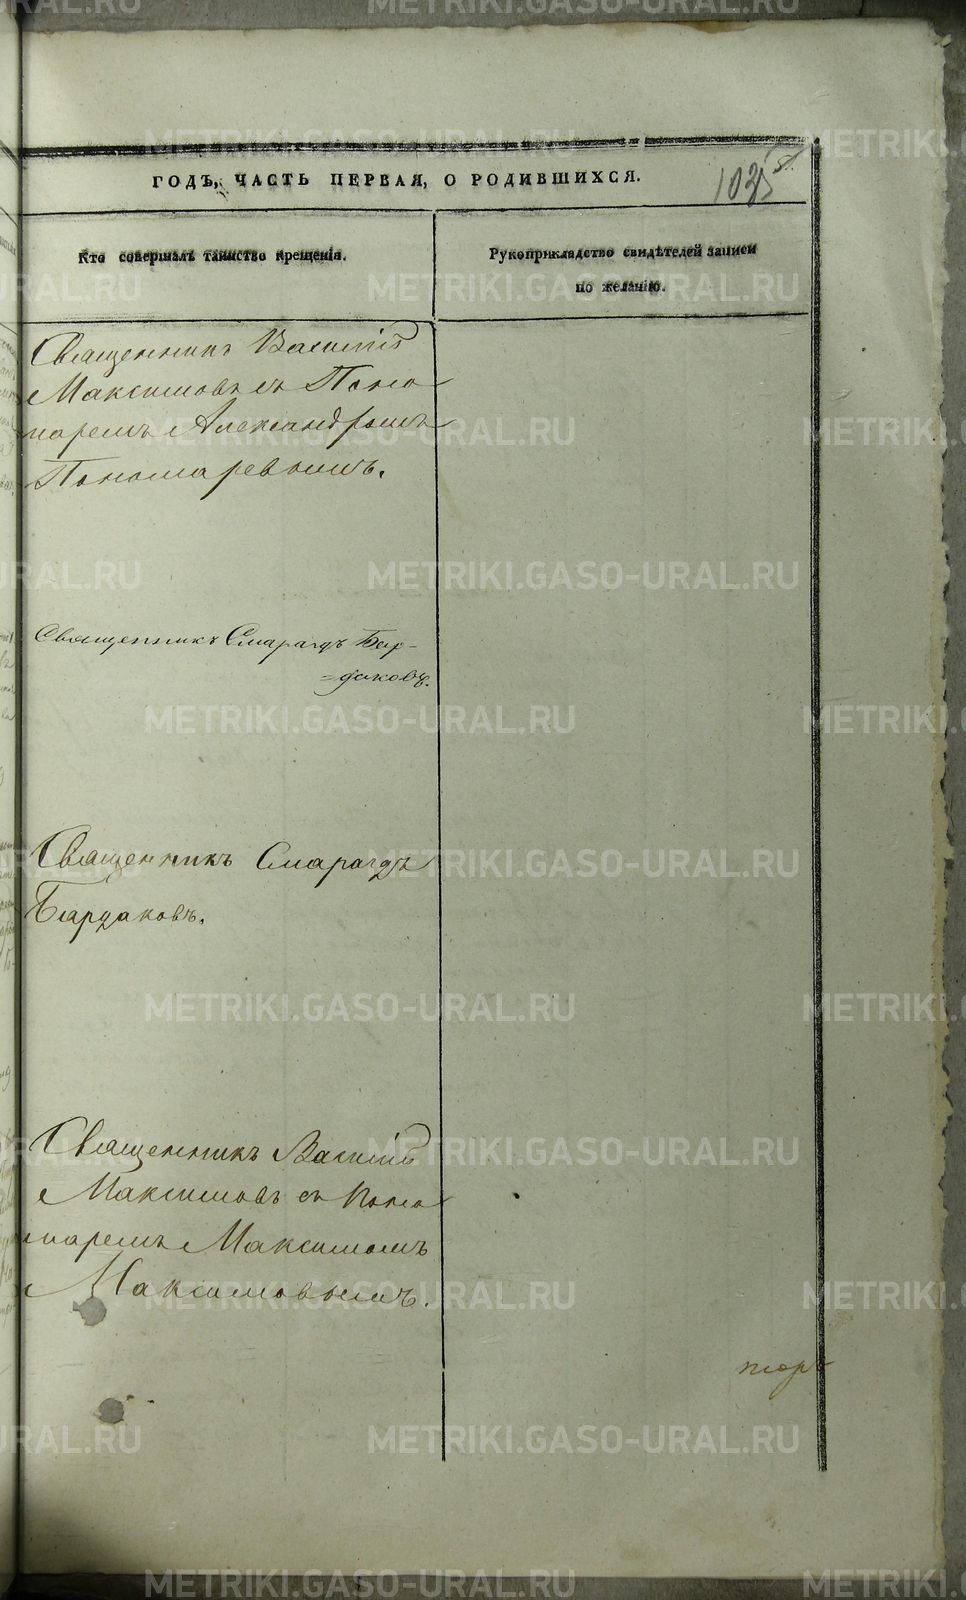 ГОДЪ, ЧАСТЬ ПЕРВАЯ, О РОДИВШИХСЯ.
Кто совершалъ таинство крещенія.
Рукоприкладство свидѣтелей записи
по желанію.
Священникъ Василій
Максимовъ съ Поно
маремъ Александромъ
Пономаревымъ.
Священникъ Смарагдъ Бар-
=даковъ.
Священникъ Смарагдъ
Бардаковъ.
Священникъ Василій
Максимовъ съ Поно
маремъ Максимомъ
Максимовымъ.
METRIKI.GASO-URAL.RU